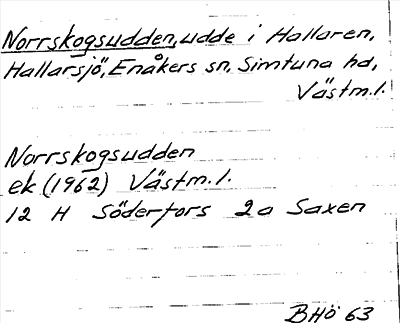 Norrskogsudden, udde i Hallaren,
Hallarsjö, Enåkers sn, Simtuna hd,
Västm.l.
Norrskogsudden
ek (1962) Västm.l.
12 H Söderfors 2a Saxen
BHö 63